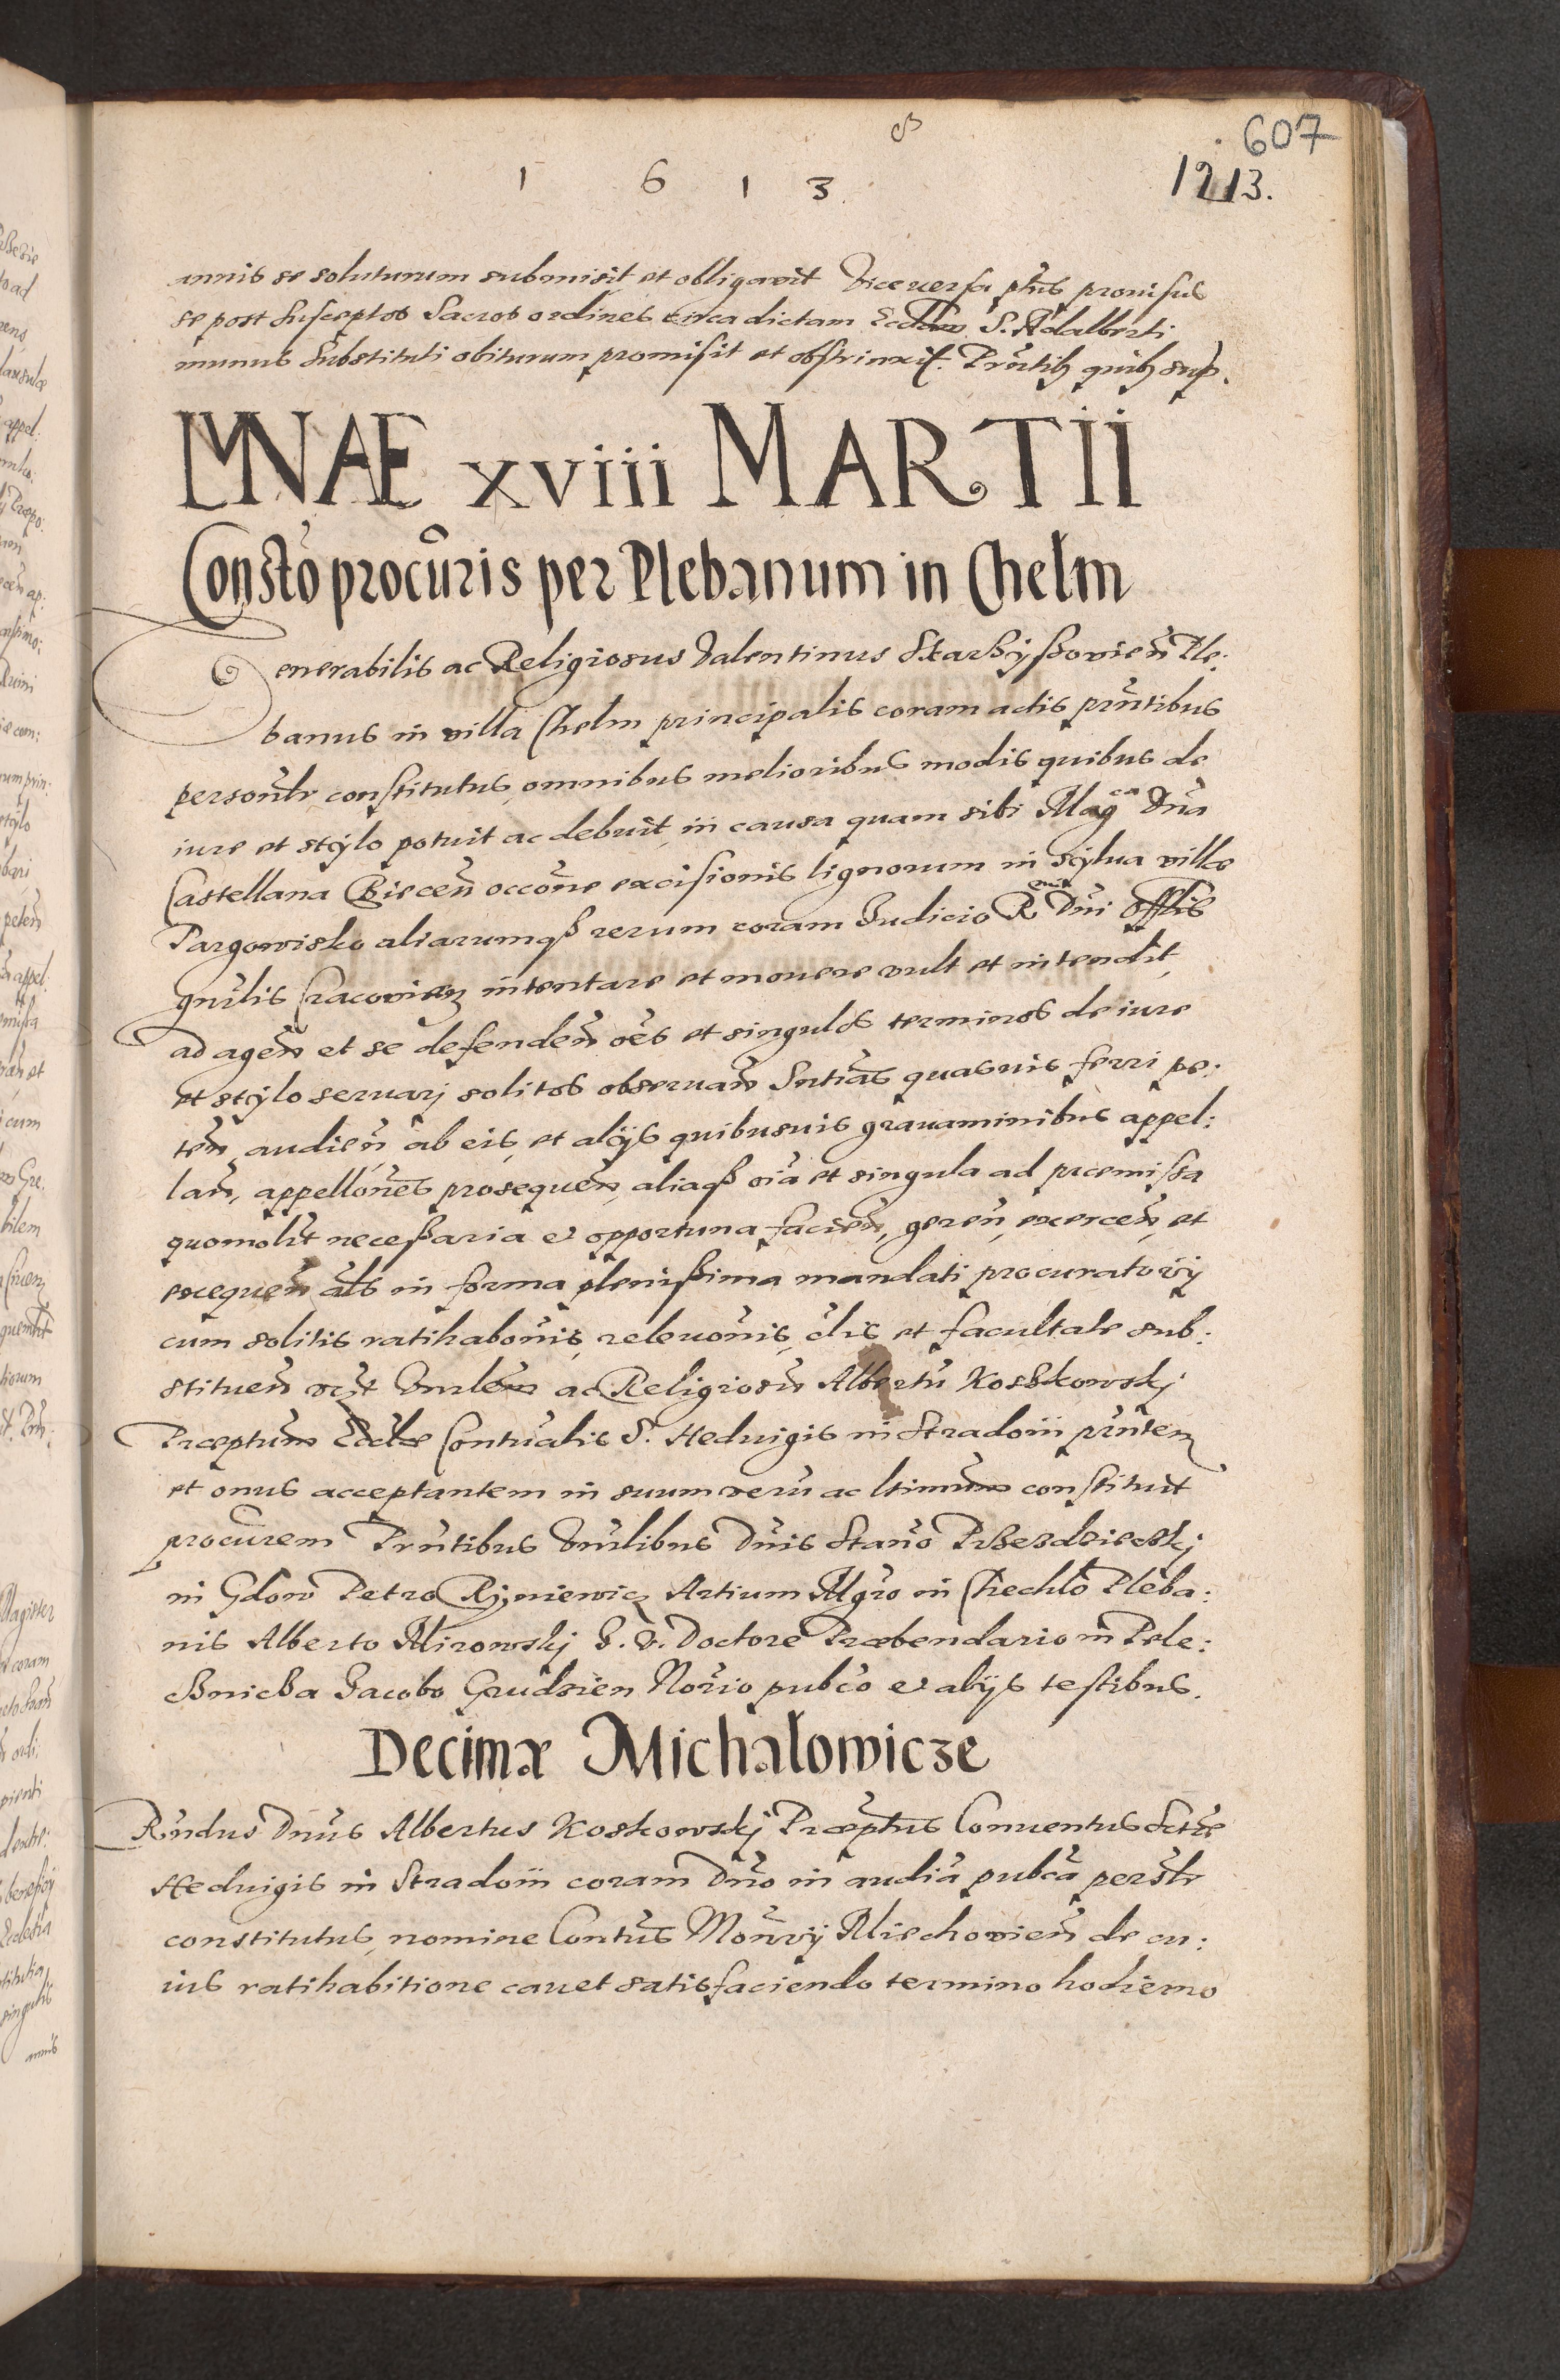 607
1 6 1 3
1213.
annis se soluturum submisit et obligavit Vice versa ptus provisus
se post susceptos Sacros ordines circa dictam Eccliam S. Adalberti
munus substituti obiturum promisit et obstrinxit. Prntib quib sup.
LVNAE xviii MARTII
Consto procuris per Plebanum in Chełm
Venerabilis ac Religiosus Valentinus Skarszyszovien Ple:
banus in villa Chełm principalis coram actis prntibus
personlr constitutus, omnibus melioribus modis quibus de
iure et stylo potuit ac debuit, in causa quam sibi Magca Dna
Castellana Biecen occone excisionis lignorum in sylva villæ
Targowisko aliarumqß rerum coram Judicio R Dni Offlis
gnrlis Cracovien intentare et movere vult et intendit,
ad agen et se defenden oes et singulos terminos de iure
et stylo servarj solitos observan Sntias quasvis ferri pe:
ten, audien, ab eis, et alijs quibusvis gravaminibus appel:
lan, appellones prosequen, aliaqß oia et singula ad præmissa
quomolt necessaria et opportuna facien, geren, exercen, et
exequen als in forma plenissima mandati procuratorij
cum solitis ratihabonis, relevonis, clis et facultate sub:
stituen Vnrlem ac Religiosu Albertu Koszkowskj
Præptum Eccliæ Contualis S. Heduigis in Stradom prntem
et onus acceptantem in suum veru ac ltimum constituit
procurem Prntibus Vnrlibus Dnis Stano Przezdzieckj
in Gdow Petro Rijniewicz Artium Mgro in Chechlo Pleba:
nis Alberto Mirowskj J. V. Doctore Præbendario in Pele:
sznicza Jacobo Grudzien Norio pubco et alijs testibus.
Decimæ Michalowicze
Rndus Dnus Albertus Koskowskj Præptus Conventus Sctæ
Heduigis in Stradom coram Dno in audia pubca perslr
constitutus, nomine Contus Monrij Miechovien de cu:
ius ratihabitione cavet satisfaciendo termino hodierno